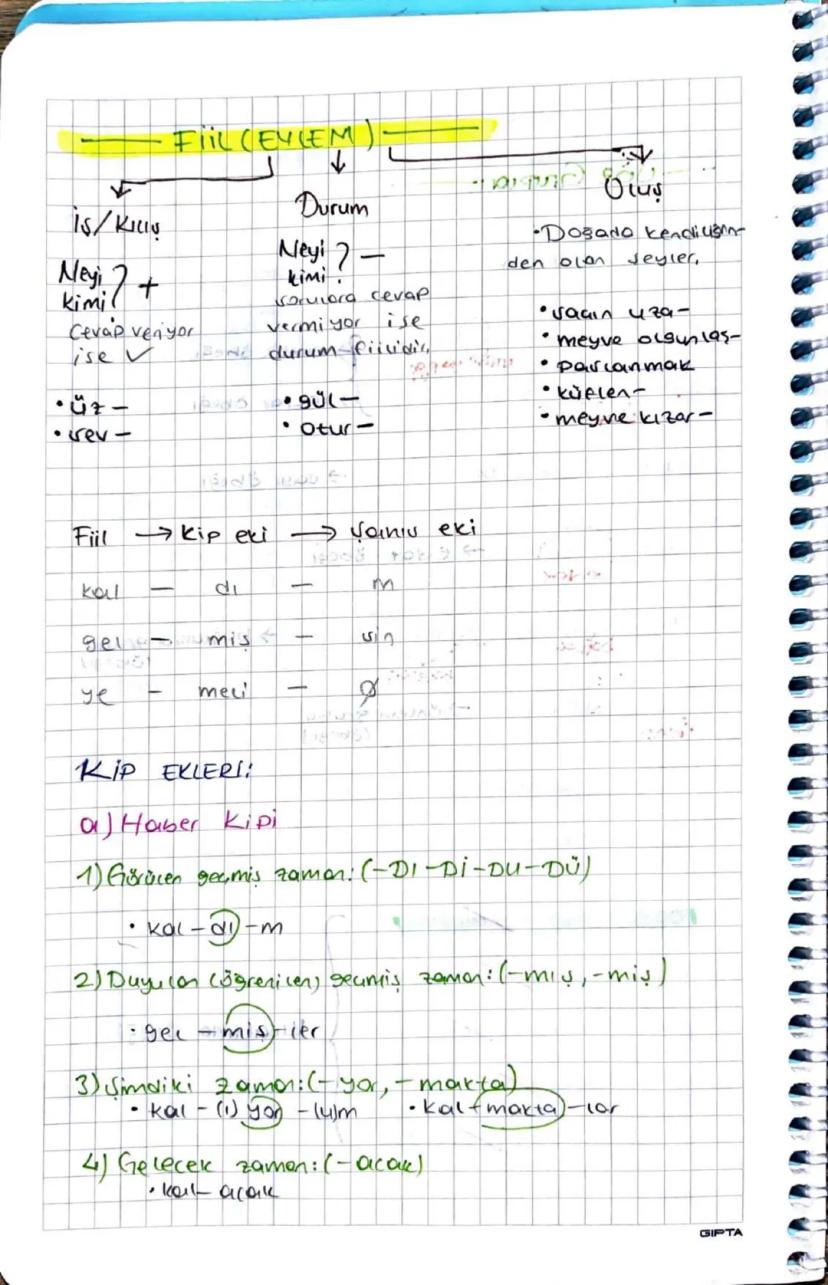 FİİL (EYLEM)
İş/Kılış
Neyi
kimi ? +
Cevap veriyor
ise ✓
• üz -
• sev -
Durum
Neyi
kimi ? -
sorulara cevap
vermiyor ise
durum fiilidir.
• gül -
• otur -
Oluş
• Doğada kendiliğin-
den olan şeyler.
• saçın uza-
• meyve olgunlaş-
• paslanmak
• küflen-
• meyve kızar-
Fiil → Kip eki → Şahıs eki
kal - dı - m
gel - miş - sin
ye - meli - ∅
KİP EKLERİ:
a) Haber Kipi
1) Görülen geçmiş zaman: (-DI -Dİ -DU -DÜ)
• kal - dı - m
2) Duyulan (öğrenilen) geçmiş zaman: (-mış, -miş)
• gel - miş - ler
3) Şimdiki zaman: (- yor, - makta)
• kal - (ı) yor - (u)m • kal - makta - lar
4) Gelecek zaman: (- acak)
• kal - acak
GIPTA